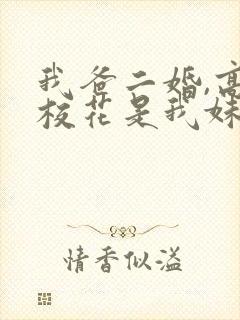 我爸二婚,高
校花是我妹
情香似溢